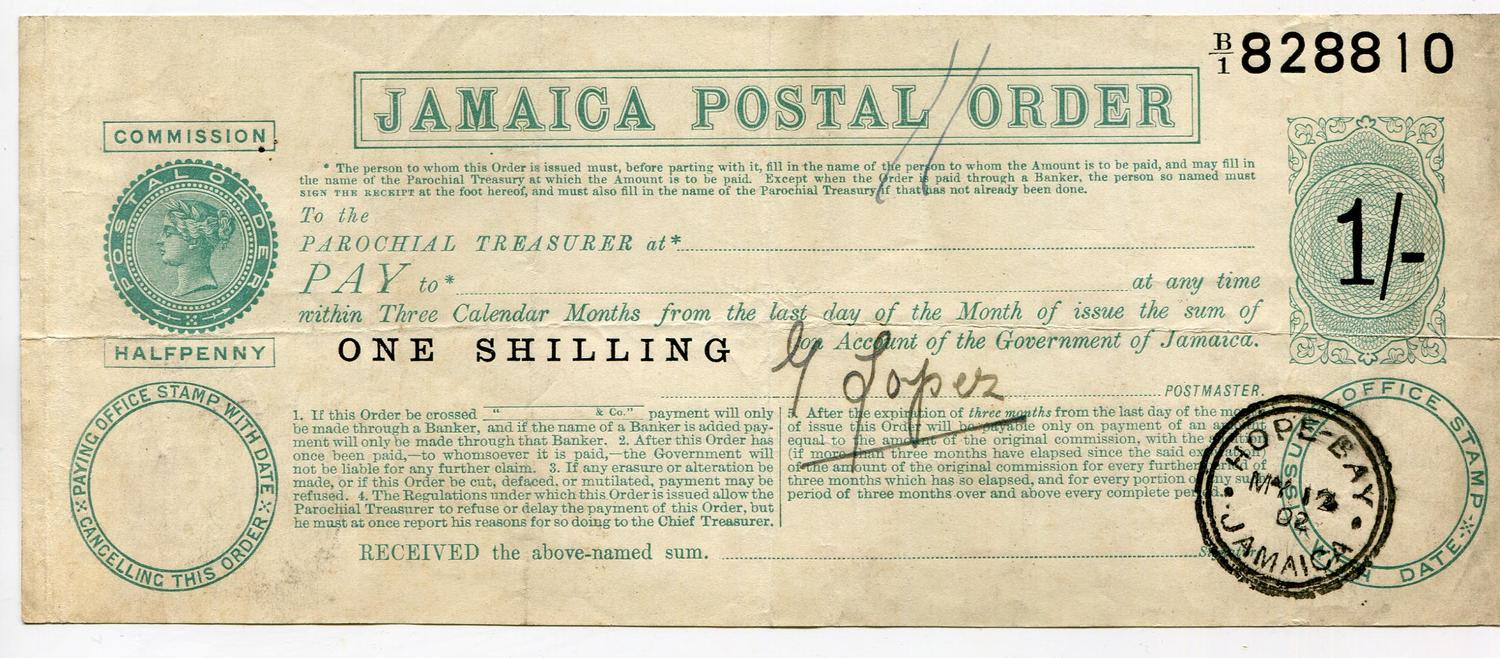 B/1 828810
JAMAICA POSTAL ORDER
COMMISSION
POSTAL ORDER
HALFPENNY
* The person to whom this Order is issued must, before parting with it, fill in the name of the person to whom the Amount is to be paid, and may fill in
the name of the Parochial Treasury at which the Amount is to be paid. Except when the Order is paid through a Banker, the person so named must
SIGN THE RECEIPT at the foot hereof, and must also fill in the name of the Parochial Treasury if that has not already been done.
1/-
To the
PAROCHIAL TREASURER at*
PAY to* at any time
within Three Calendar Months from the last day of the Month of issue the sum of
ONE SHILLING on Account of the Government of Jamaica.
G Lopez
POSTMASTER.
PAYING OFFICE STAMP WITH DATE
CANCELLING THIS ORDER
1. If this Order be crossed " & Co." payment will only
be made through a Banker, and if the name of a Banker is added pay-
ment will only be made through that Banker. 2. After this Order has
once been paid,—to whomsoever it is paid,—the Government will
not be liable for any further claim. 3. If any erasure or alteration be
made, or if this Order be cut, defaced, or mutilated, payment may be
refused. 4. The Regulations under which this Order is issued allow the
Parochial Treasurer to refuse or delay the payment of this Order, but
he must at once report his reasons for so doing to the Chief Treasurer.
5. After the expiration of three months from the last day of the
of issue this Order will be payable only on payment of an
equal to the amount of the original commission, with the
(if more than three months have elapsed since the said
of the amount of the original commission for every further period of
three months which has so elapsed, and for every portion of any
period of three months over and above every complete period.
ISSUING OFFICE STAMP WITH DATE
HOPE-BAY
MY 12
02
JAMAICA
RECEIVED the above-named sum. Signature